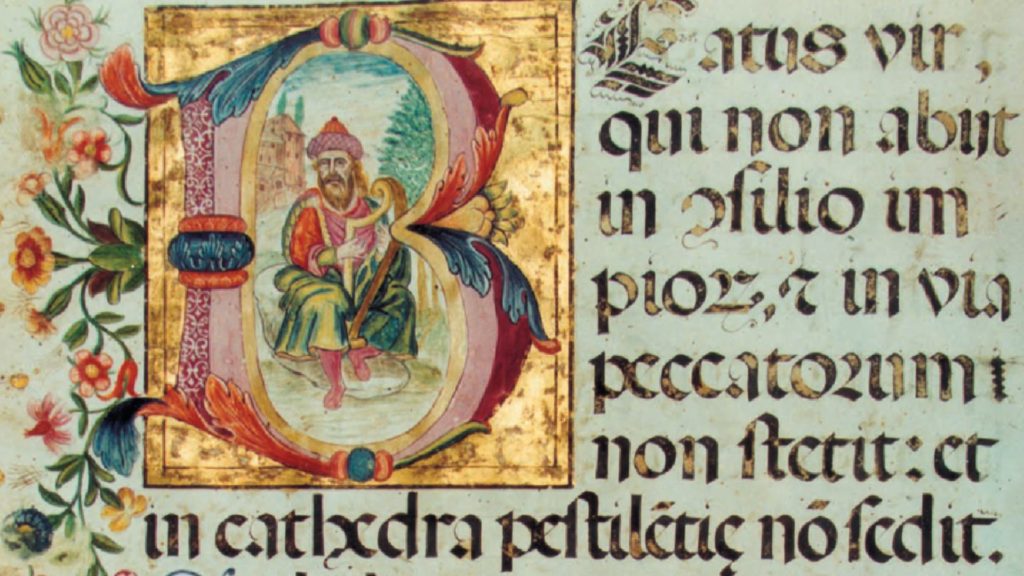 Beatus vir,
qui non abijt
in ꝯsilio im
pioꝝ, ⁊ in via
peccatorum
non ſtetit: et
in cathedra peſtilētię nō ſedit.